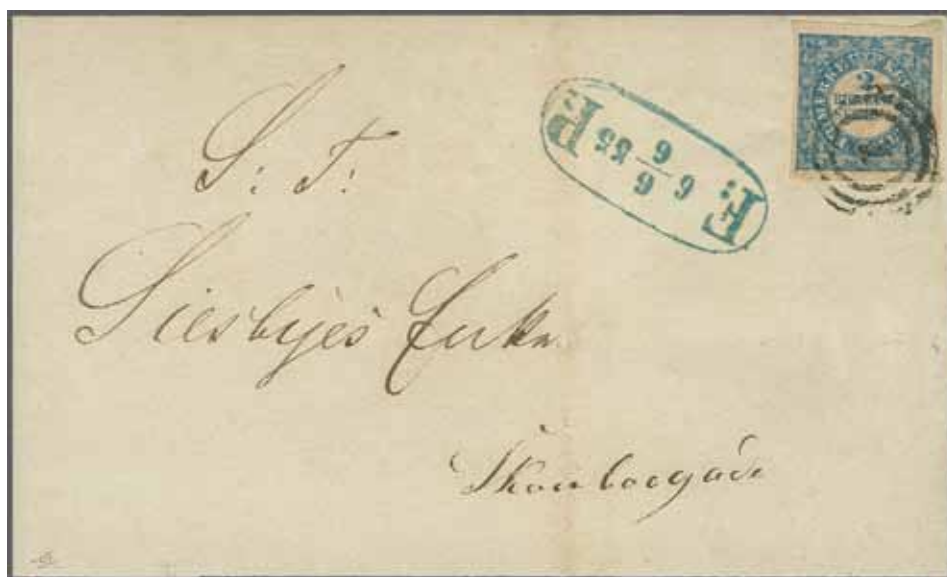 S: T:
Siesbÿes Enke
Skouboegade
F: P:
55
2